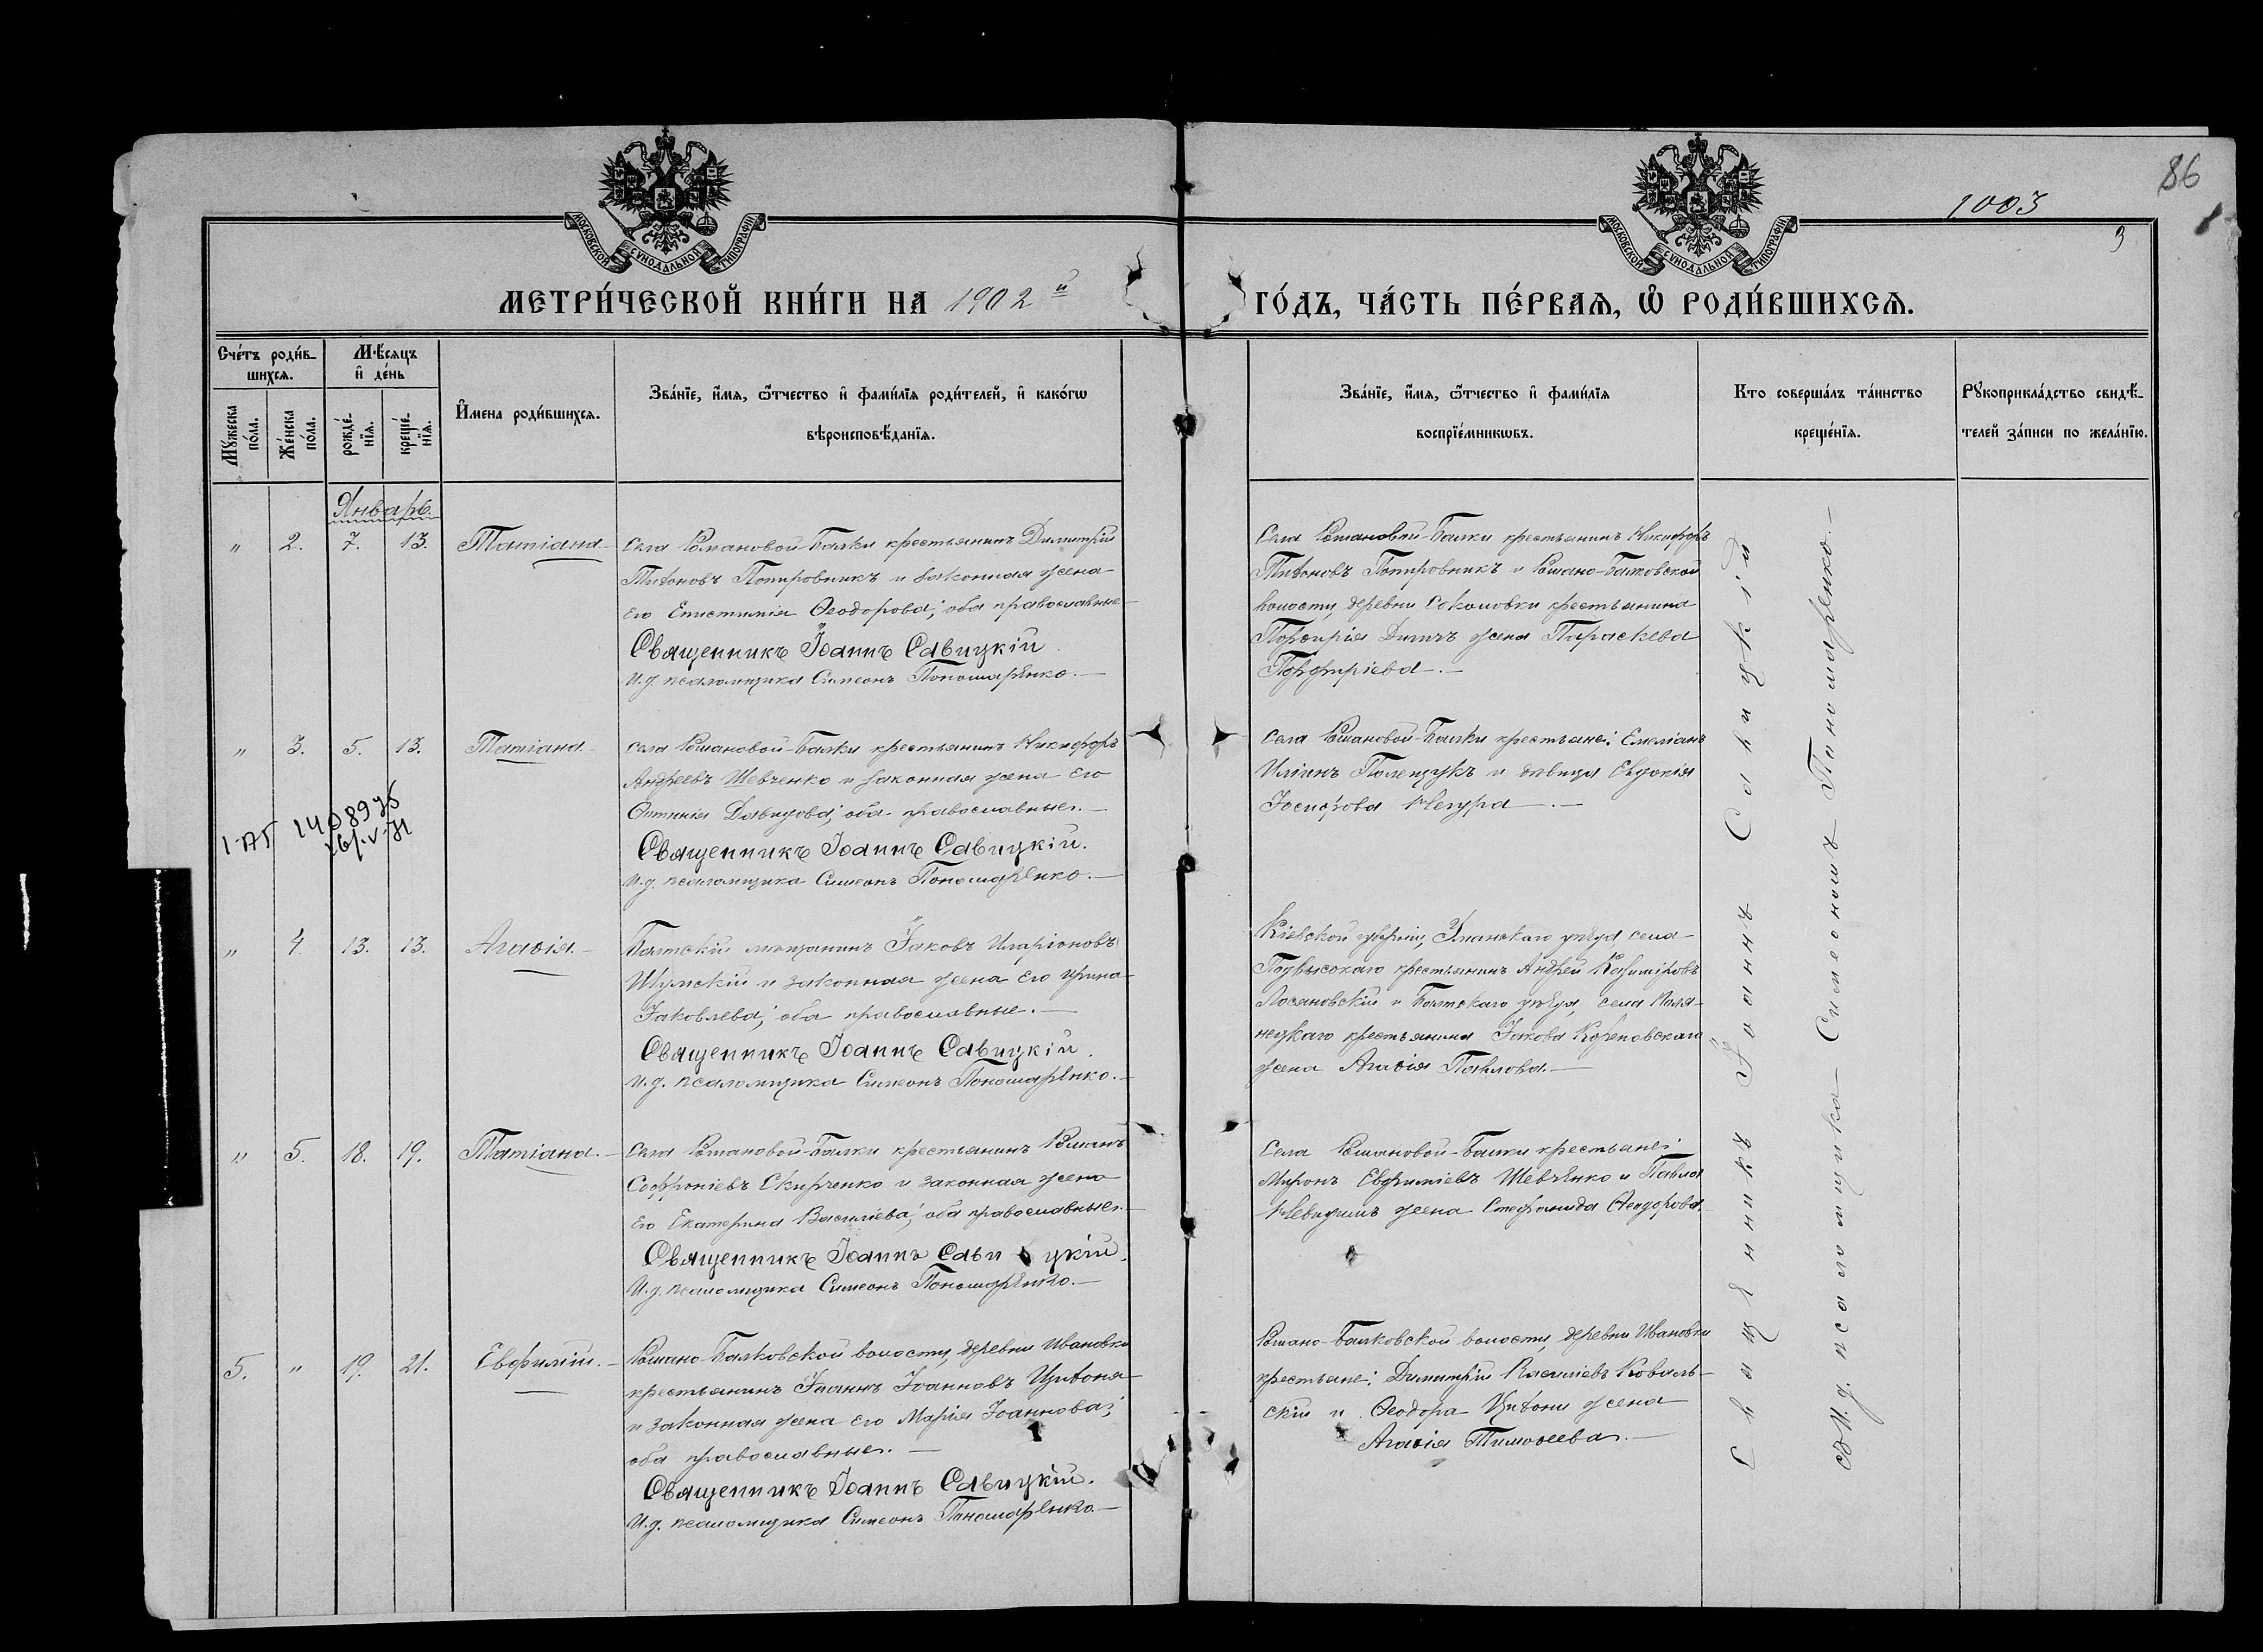 86
1003
3
МОСКОВСКОЙ СѴНОДАЛЬНОЙ ТИПОГРАФІИ
МОСКОВСКОЙ СѴНОДАЛЬНОЙ ТИПОГРАФІИ
МЕТРИ́ЧЕСКОЙ КНИ́ГИ НА 1902 й
ГО́ДЪ, ЧА́СТЬ ПЕ́РВАѦ, Ѽ РОДИ́ВШИХСѦ.
Сче́тъ роди́в-
шихсѧ.
Мѣ́сѧцъ
и҆ де́нь
Мꙋ́жеска по́ла.
Же́нска по́ла.
рожде́-
нїѧ.
креще́-
нїѧ.
И҆мена роди́вшихсѧ.
Зва́нїе, и҆́мѧ, ѻ҆́тчество и҆ фами́лїѧ роди́телей, и҆ како́гѡ
вѣроисповѣ́данїѧ.
Зва́нїе, и҆́мѧ, ѻ҆́тчество и҆ фами́лїѧ
воспрїе́мникѡвъ.
Кто соверша́лъ та́инство
креще́нїѧ.
Рꙋкоприкла́дство свидѣ́-
телей за́писи по жела́нїю.
Январь.
" 2. 7. 13. Татіана
Села Романовой-Балки крестьянинъ Димитрій
Титоновъ и законная жена
его Епистимія Ѳеодорова; оба православные.
Священникъ Іоаннъ Савицкій.
И.д. псаломщика Симеонъ Пономаренко.
Села Романовой-Балки крестьянинъ Никифоръ
Титоновъ и Романо-Балковской
волости, деревни Соколовки крестьянина
Порфирія жена Параскева
Порфиріева.
" 3. 5. 13. Татіана
Села Романовой-Балки крестьянинъ Никифоръ
Андреевъ Шевченко и законная жена его
Давидова; оба православные.
Священникъ Іоаннъ Савицкій.
И.д. псаломщика Симеонъ Пономаренко.
Села Романовой-Балки крестьяне: Емеліанъ
Иліинъ Полещукъ и девица Евдокія
Іосифова Негура
140895
" 4. 13. 13. Агаѳія
Балтскій мещанинъ Іаковъ Иларіоновъ
Шумскій и законная жена его Ирина
Іаковлева; оба православные.
Священникъ Іоаннъ Савицкій.
И.д. псаломщика Симеонъ Пономаренко.
Кіевской губерніи, Уманскаго уѣзда, села
Подвысокаго крестьянинъ Андрей Казиміровъ
Лосановскій и Балтскаго уѣзда, села
крестьянина Іакова
жена Агаѳія Павлова.
" 5. 18. 19. Татіана.
Села Романовой-Балки крестьянинъ Романъ
Софроніевъ Скирченко и законная жена
его Екатерина Василіева; оба православные.
Священникъ Іоаннъ Савицкій.
И.д. псаломщика Симеонъ Пономаренко.
Села Романовой-Балки крестьяне:
Миронъ Евфиміевъ Шевченко и Павла
жена Стефанида Ѳеодорова.
5. " 19. 21. Евфимій.
Романо-Балковской волости, деревни Ивановки
крестьянинъ Іоаннъ Іоанновъ
и законная жена его Марія Іоаннова;
оба православные.
Священникъ Іоаннъ Савицкій.
И.д. псаломщика Симеонъ Пономаренко.
Романо-Балковской волости, деревни Ивановки
крестьяне: Димитрій Василіевъ Коваль-
скій и Ѳеодора жена
Агаѳія Тимоѳеева.
Священникъ Іоаннъ Савицкій
И.д. псаломщика Симеонъ Пономаренко.